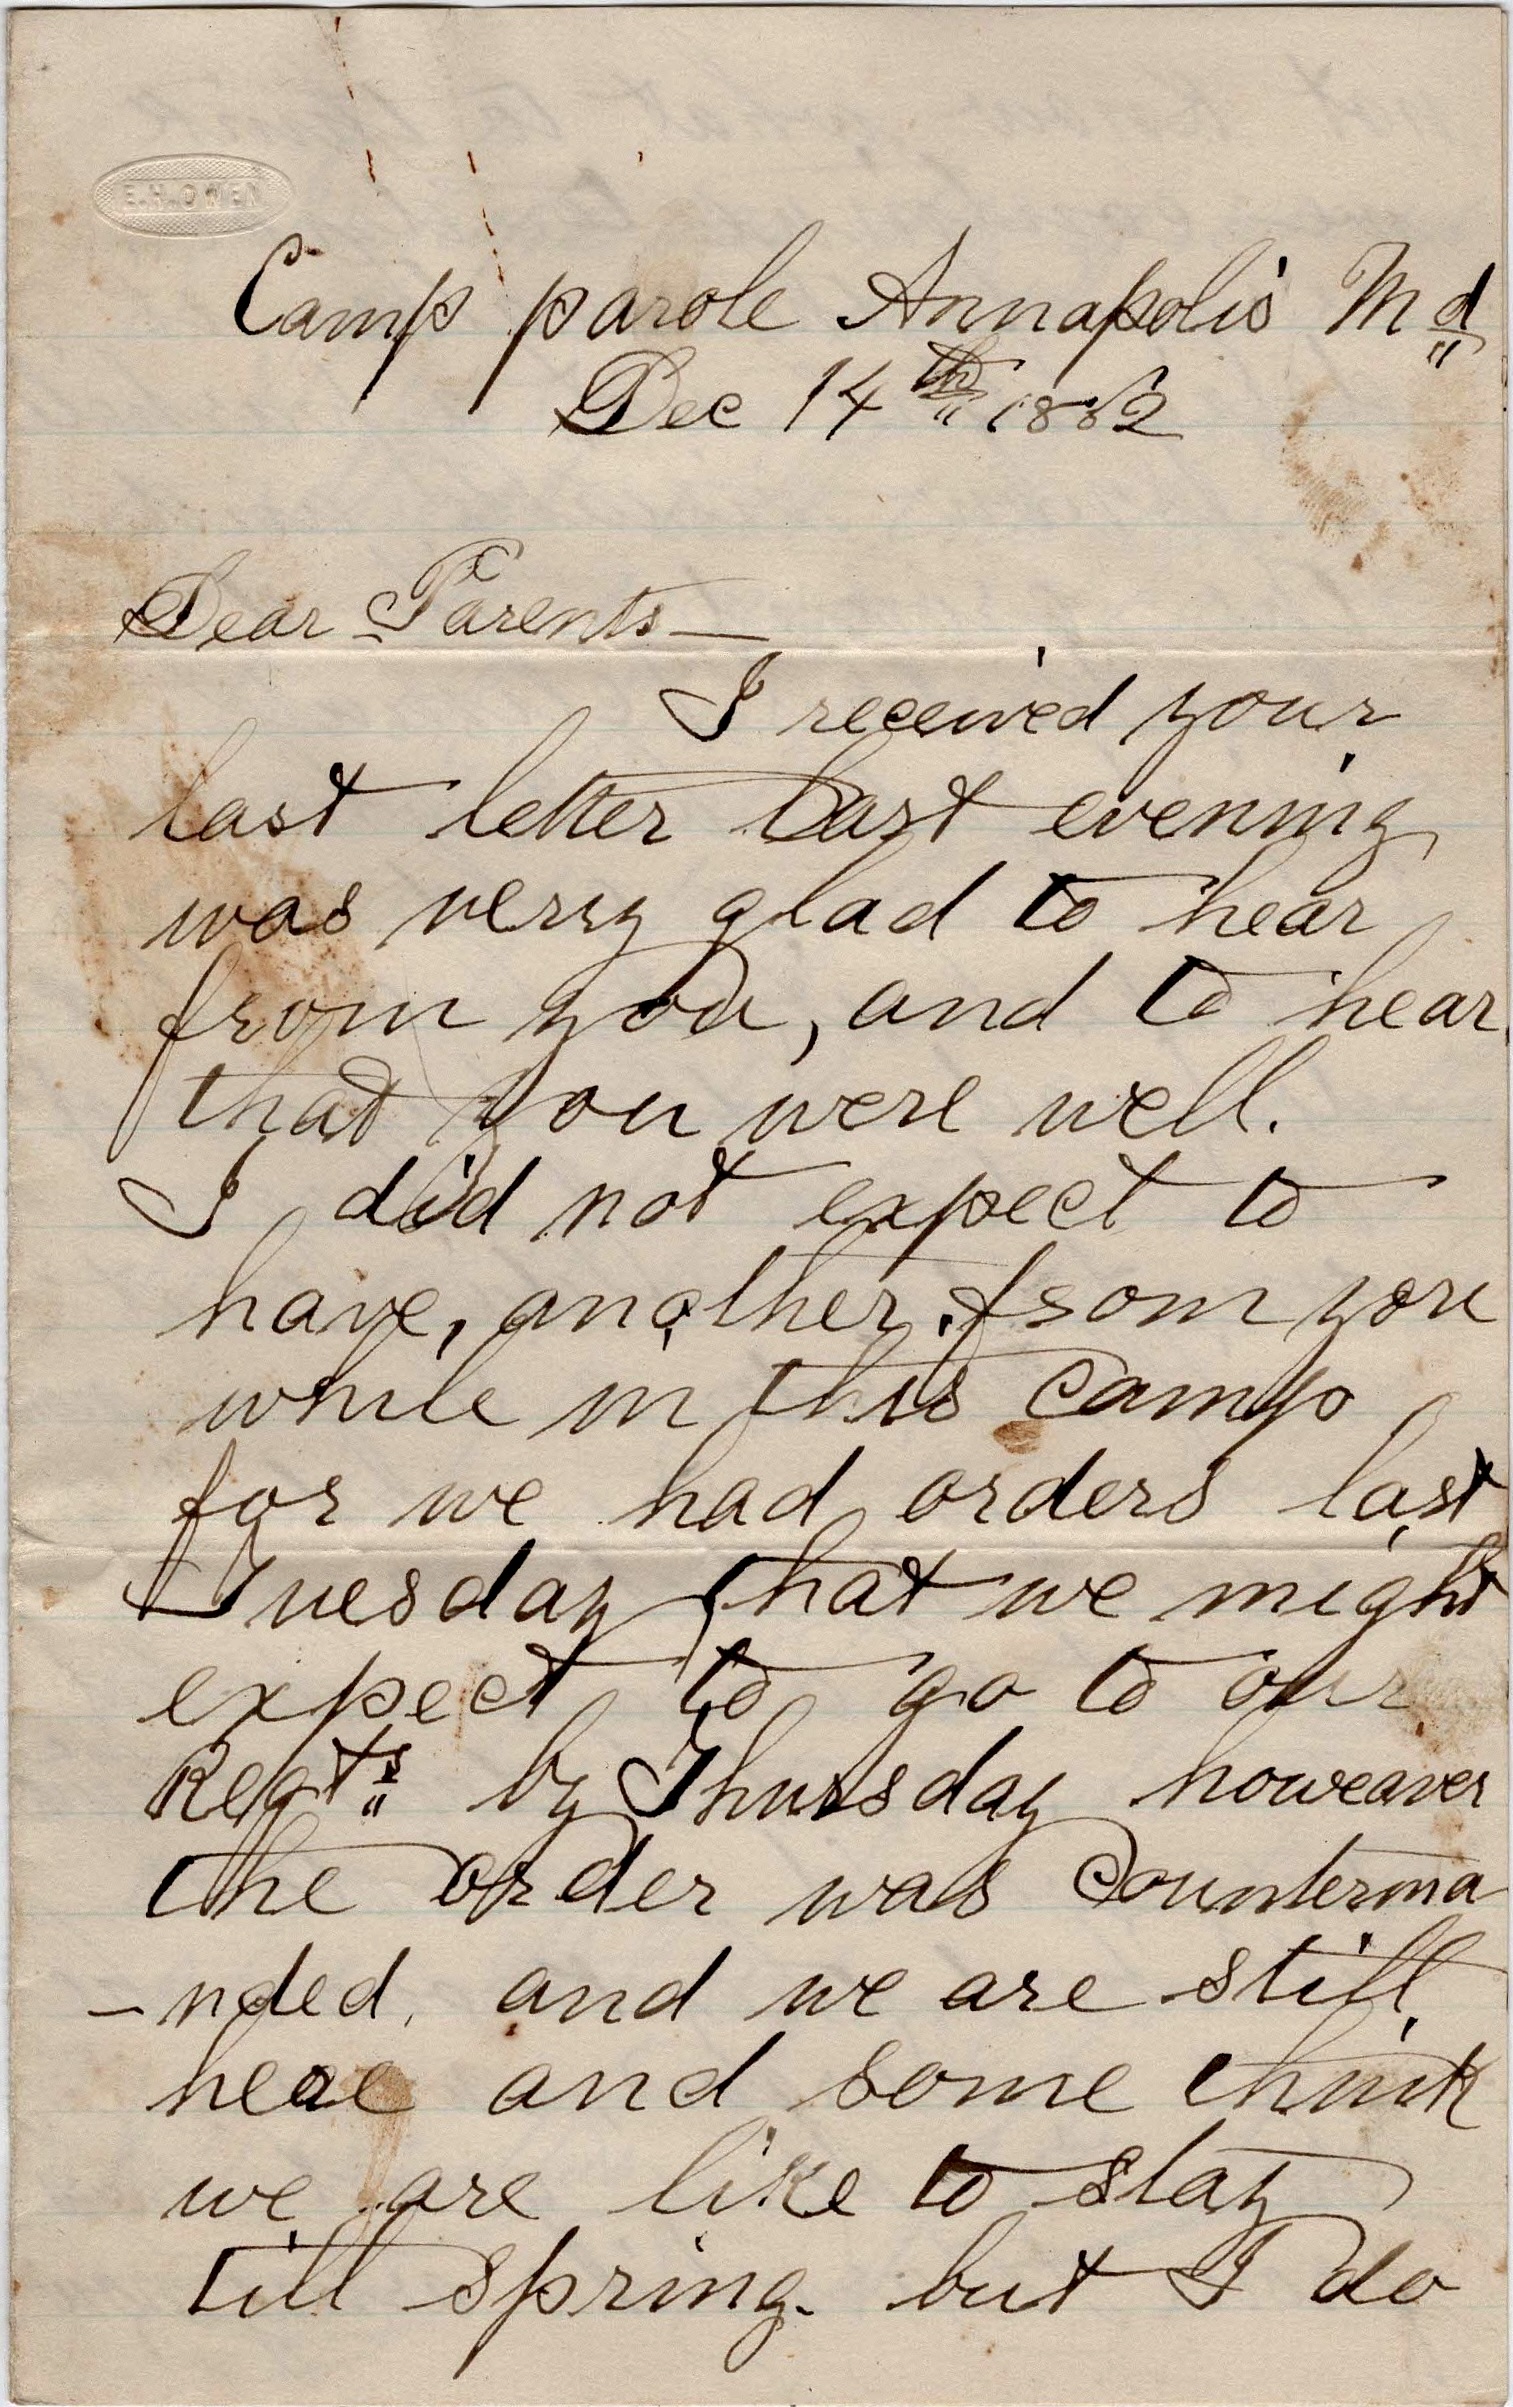 E.H.OWEN
Camp parole Annapolis Md
Dec 14th 1862
Dear Parents —
I received your
last letter last evening
was very glad to hear
from you, and to hear
that you were well.
I did not expect to
have, another from you
while in this camp
for we had orders last
Tuesday that we might
expect to go to our
Regts by Thursday howeaver
the order was Counterma
-nded, and we are still
here and some think
we are like to stay
till spring. but I do